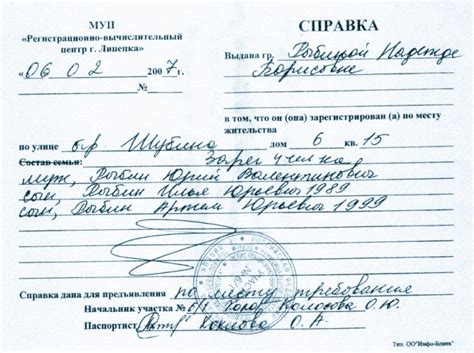 МУП
«Регистрационно-вычислительный
центр г. Липецка»
«06 02 2007 г.
№
СПРАВКА
Выдана гр. Рыбицкой Надежде
Борисовне
в том, что он (она) зарегистрирован (а) по месту
жительства
по улице б-р Шубина дом 6 кв. 15
Состав семьи: Зарег чел ка
муж, Рыбин Юрий Валентинович
сын, Рыбин Илья Юрьевич 1989
сын, Рыбин Артем Юрьевич 1999
Справка дана для предъявления по месту требования
Начальник участка № Колосова О.Ю.
Паспортист О.А.
Тип. ООО "Инфо-Бланк"